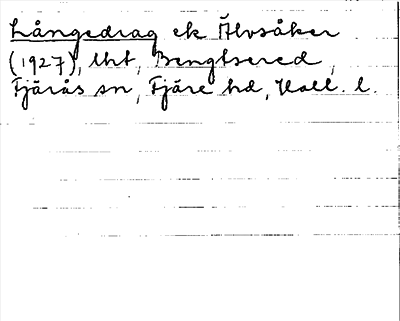 Långedrag ek Älvsåker
(1927), lht, Bengtsered,
Fjärås sn, Fjäre hd, Hall. l.